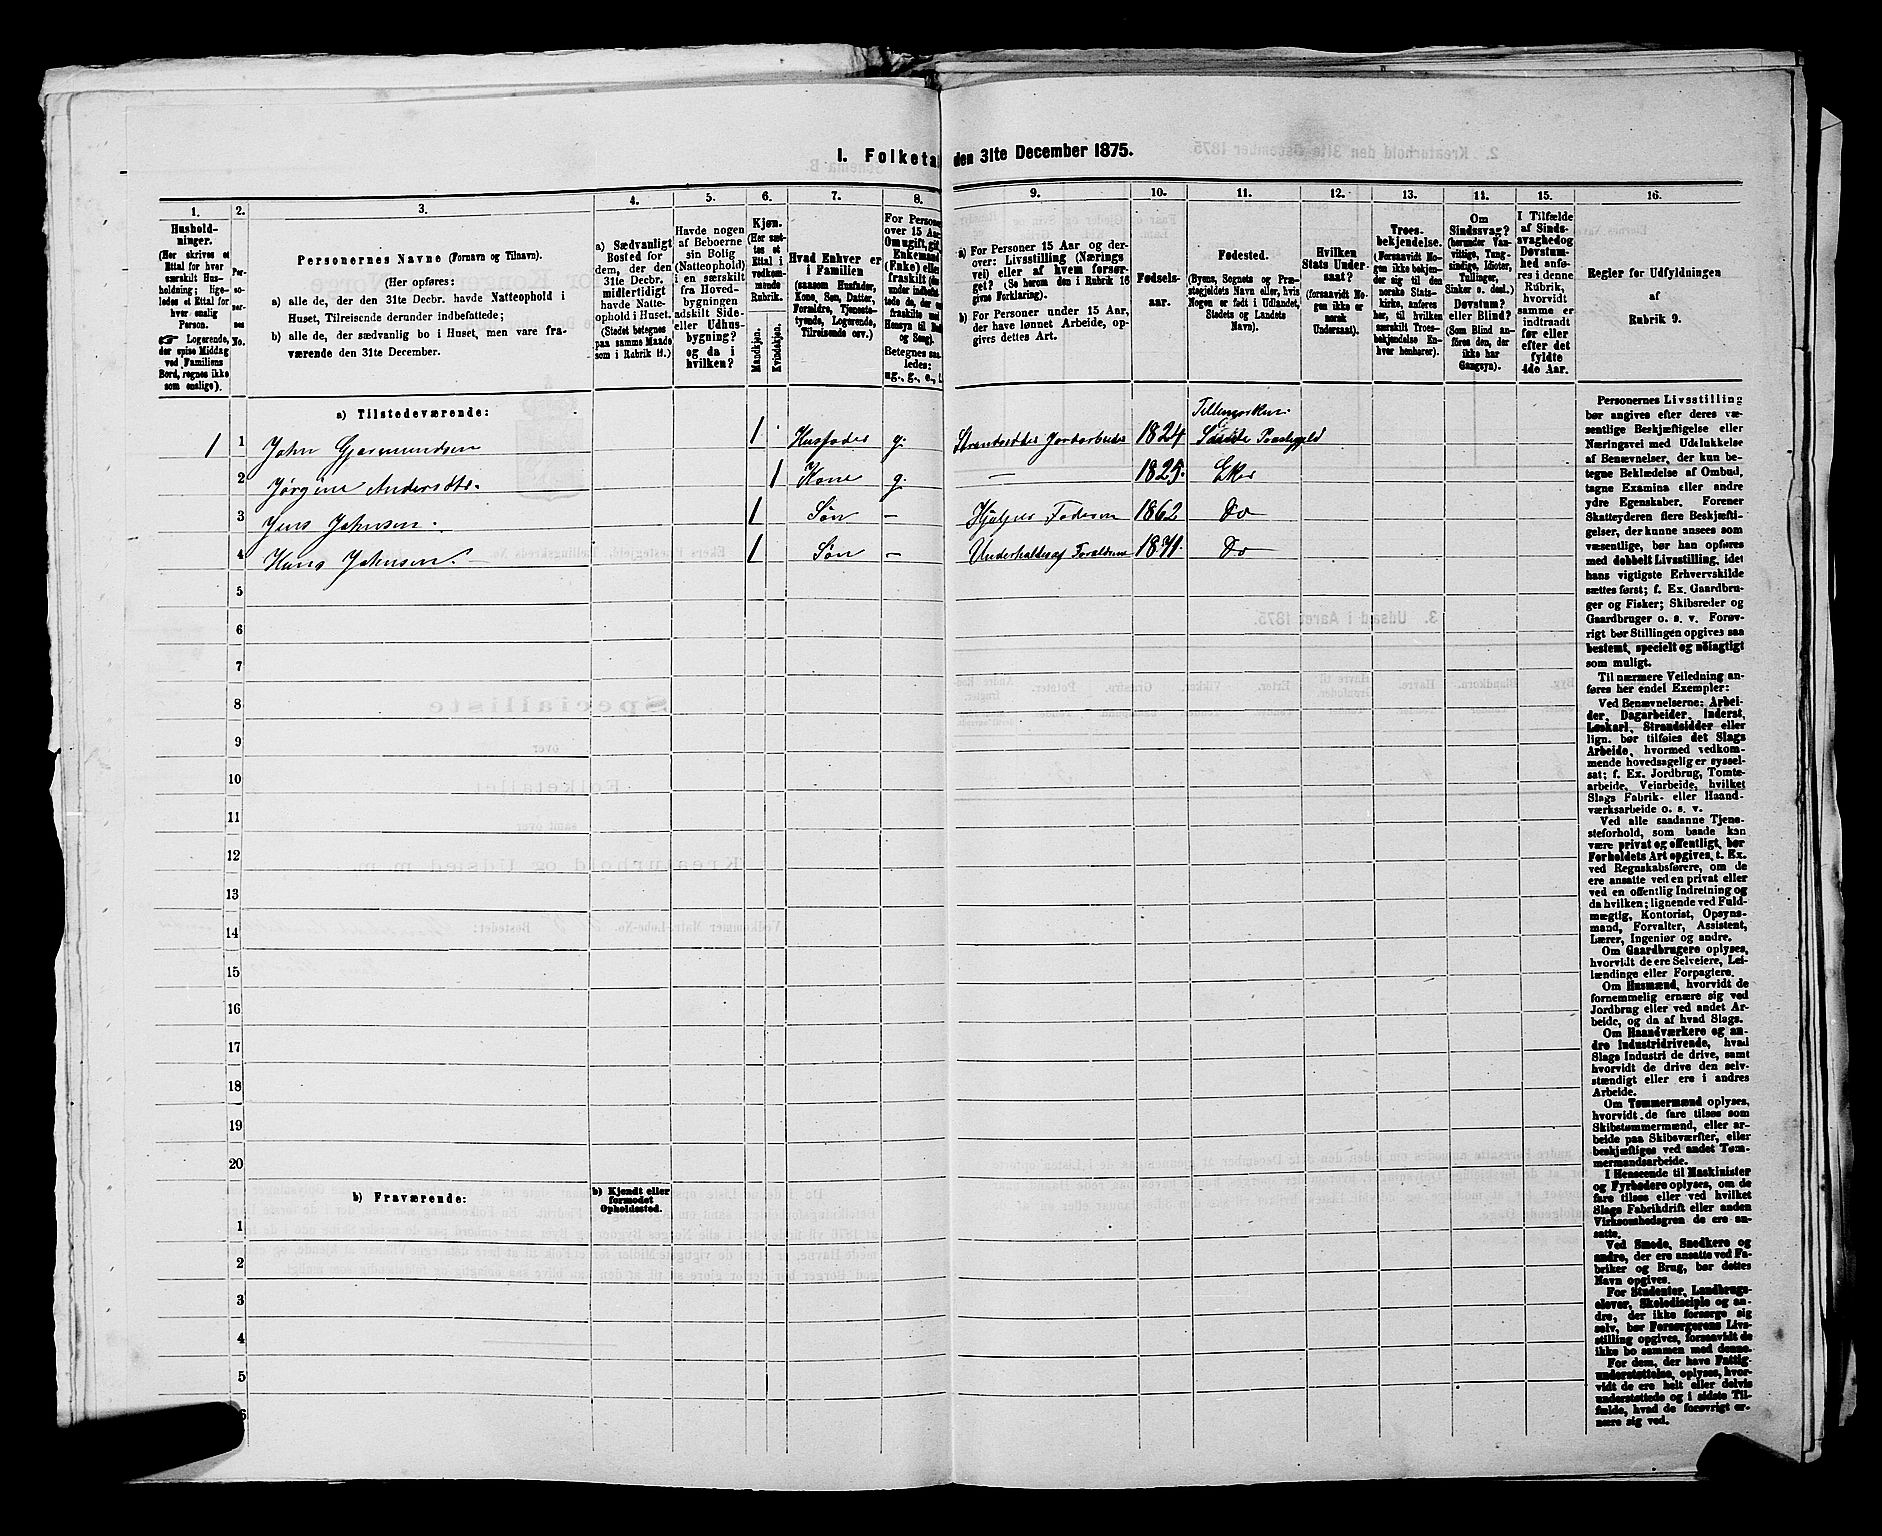 I. Folketal den 31te December 1875.
1. 2. 3. 4. 5. 6. 7. 8. 9. 10. 11. 12. 13. 14. 15. 16.
Husholdninger.
(Her skrives et
Ettal for hver
særskilt Husholdning;
ligeledes et Ettal for
hver enslig
Person.
☞ Logerende,
der spise Middag
ved Familiens
Bord, regnes ikke
som enslige).
Personernes No.
Personernes Navne (Fornavn og Tilnavn).
(Her opføres:
a) alle de, der den 31te Decbr. havde Natteophold i
Huset, Tilreisende derunder indbefattede;
b) alle de, der sædvanlig bo i Huset, men vare fra-
værende den 31te December.
a) Sædvanligt
Bosted for
dem, der den
31te Decbr.
midlertidigt
havde Natte-
ophold i Huset.
(Stedet betegnes
paa samme Maade
som i Rubrik 11.)
Havde nogen
af Beboerne
sin Bolig
(Natteophold)
i en særskilt
fra Hoved-
bygningen
adskilt Side-
eller Udhus-
bygning?
og da i
hvilken?
Kjøn.
(Her sæt-
tes et
Ettal i
vedkom-
mende
Rubrik.
Mandkjøn.
Kvindekjøn.
Hvad Enhver er
i Familien
(saasom Husfader,
Kone, Søn, Datter,
Forældre, Tjeneste-
tyende, Logerende,
Tilreisende osv.)
For Personer
over 15 Aar:
Om ugift, gift,
Enkemand
(Enke) eller
fraskilt
Betegnes saa-
ledes:
ug., g., e., f.
a) For Personer 15 Aar og der-
over: Livsstilling (Nærings
vei) eller af hvem forsør-
get? (Se herom den i Rubrik 16
givne Forklaring).
b) For Personer under 15 Aar,
der have lønnet Arbeide, op-
gives dettes Art.
Fødsels-
aar.
Fødested.
(Byens, Sognets og Præ-
stegjeldets Navn eller, hvis
Nogen er født i Udlandet,
Stedets og Landets
Navn).
Hvilken
Stats Under-
saat?
(forsaavidt No-
gen ikke er
norsk
Undersaat).
Troes-
bekjendelse.
(Forsaavidt No-
gen ikke bekjen-
der sig til den
norske Stats-
kirke, anføres
her, til hvilken
særskilt Troes-
bekjendelse En-
hver henhører).
Om
Sindssvag?
(herunder Van-
vittige, Tung-
sindige, Idioter,
Tullinger,
Sinker o. desl.)
Døvstum?
eller Blind?
(Som Blind an-
føres den, der
ikke har
Gangsyn).
I Tilfælde
af Sinds-
svaghed og
Døvstum-
hed anfø-
res i denne
Rubrik,
hvorvidt
samme er
indtraadt
før eller
efter det
fyldte
4de Aar.
Regler for Udfyldningen
af
Rubrik 9.
a) Tilstedeværende:
1 1 John Gjermundsen 1 Husfader g. Strandsidder Jordarbeider 1824. Tellemarken Præstegjeld
2 Jørgine Andersdtr. 1 Kone g. — 1825. Eker
3 Jens Johnsen. 1 Søn — Hjælper Faderen 1862 Do
4 Hans Johnsen. 1 Søn — Underholdes af Forældrene 1871. Do
5
6
7
8
9
10
11
12
13
14
15
16
17
18
19
20
b) Fraværende:
b) Kjendt eller
formodet
Opholdssted.
1
2
3
4
5
6
Personernes Livsstilling
bør angives efter deres væ-
sentlige Beskjæftigelse eller
Næringsvei med Udelukkelse
af Benævnelser, der kun be-
tegne Beklædelse af Ombud,
tagne Examina eller andre
ydre Egenskaber. Forener
Skatteyderen flere Beskjæfti-
gelser, der kunne ansees som
væsentlige, bør han opføres
med dobbelt Livsstilling, idet
hans vigtigste Erhvervskilde
sættes først; f. Ex. Gaardbru-
ger og Fisker; Skibsreder og
Gaardbruger o. s. v. Forøv-
rigt bør Stillingen opgives saa
bestemt, specielt og nøiagtigt
som muligt.
Til nærmere Veiledning an-
føres her endel Exempler:
Ved Benævnelserne: Arbei-
der, Dagarbeider, Inderst,
Løskarl, Strandsidder eller
lign. bør tilføies det Slags
Arbeide, hvormed vedkom-
mende hovedsagelig er syssel-
sat; f. Ex. Jordbrug, Tomte-
arbeide, Veiarbeide, hvilket
Slags Fabrik- eller Haand-
værksarbeide o. s. v.
Ved alle saadanne Tjene-
steforhold, som baade kan
være privat og offentligt, bør
Forholdets Art opgives, t. Ex.
ved Regnskabsførere, om de
ere ansatte ved en privat eller
ved en offentlig Indretning og
da hvilken; lignende ved Fuld-
mægtig, Kontorist, Opsyns-
mand, Forvalter, Assistent,
Lærer, Ingeniør og andre.
Om Gaardbrugere oplyses,
hvorvidt de ere Selveiere, Lei-
lændinge eller Forpagtere.
Om Husmænd, hvorvidt de
fornemmelig ernære sig ved
Jordbrug eller ved andet Ar-
beide, og da af hvad Slags.
Om Haandværkere og an-
dre Industridrivende, hvad
Slags Industri de drive, samt
hvorvidt de drive den selv-
stændigt eller ere i andres
Arbeide.
Om Tømmermænd oplyses,
hvorvidt de fare tilsøs som
Skibstømmermænd, eller ar-
beide paa Skibsværfter, eller
beskjæftiges ved andet Tøm-
mermandsarbeide.
I Henseende til Maskinister
og Fyrbødere oplyses, om de
fare tilsøs eller ved hvilket
Slags Fabrikdrift eller anden
Virksomhedsgren de ere an-
satte.
Ved Smede, Snedkere og
andre, der ere ansatte ved Fa-
briker og Brug, bør dettes
Navn opgives.
For Studenter, Landbrugs-
elever, Skoledisciple og an-
dre, der ikke forsørge sig
selv, bør Forsørgerens Livs-
stilling opgives, forsaavidt de
ikke bo sammen med denne.
For dem, der have Fattig-
understøttelse, oplyses, hvor-
vidt de ere helt eller delvis
understøttede og i sidste Til-
fælde, hvad de forøvrigt er-
nære sig ved.